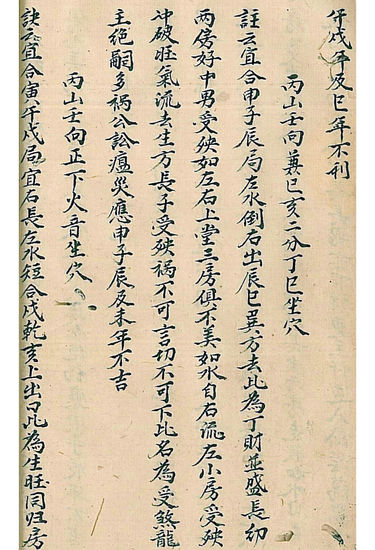 午戌年及巳年不利
丙山壬向兼巳亥二分丁巳坐穴
註云宜合申子辰局左水倒右出辰巳巽方去此為丁財並盛長幼
两房好中男受殃如左右上堂三房俱不美如水自右流左小房受殃
冲破旺氣流去生方長子受殃禍不可言切不可下比名為受煞龍
主绝嗣多禍公訟瘟災應申子辰及未年不吉
丙山壬向正下火音坐穴
訣云宜合寅午戌局宜右長左水短合戌乾亥上出口此為生旺同归房